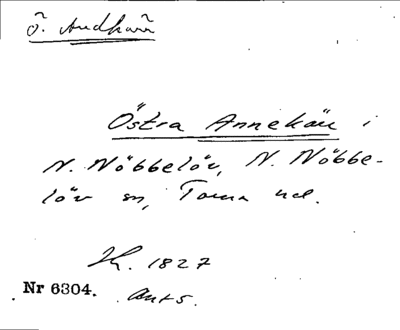 Ö. Andkärr
Östra Annekärr i
N. Nöbbelöv, N. Nöbbe-
löv sn, Torna hd.
Hk. 1827
Nr 6304. Ant 5.